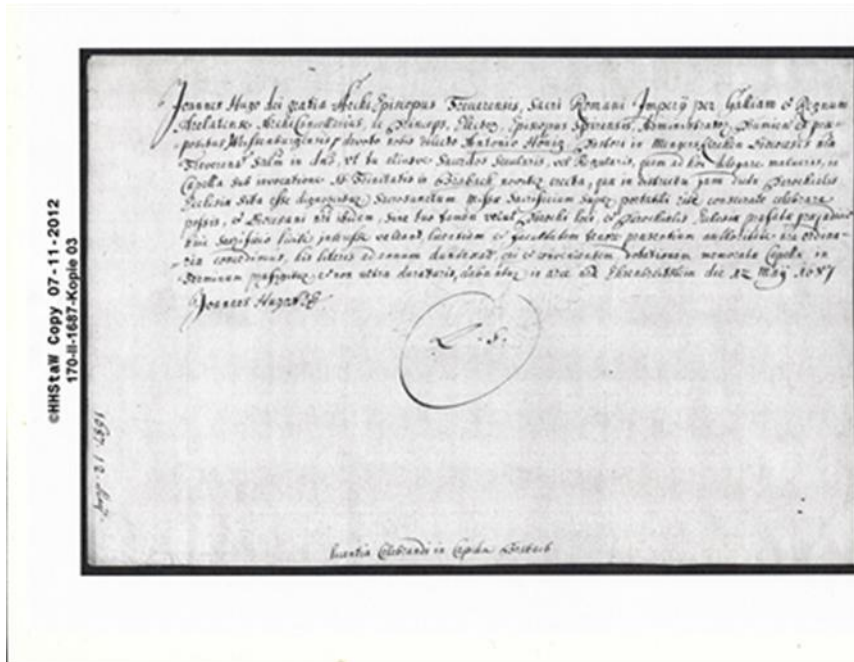 Joannes Hugo dei gratia Archi Episcopus Trevirensis, Sacri Romani Imperÿ per Galliam et Regnum
Arelatense Archi Cancellarius, ac Princeps Elector, Episcopus Spirensis, Administrator Prumiensis et prae-
positus Weissenburgensis, devoto nobis dilecto Antonio Hönig Pastori in Mengerskirchen Dioecesis nrae
Trevirensis Salm in dno, ut tu aliusve Sacerdos Secularis, vel Regularis, quem ad hoc delegare malueris, in
Capella sub invocatione SS Trinitatis in noviter erecta, qua in districtu jam dictae Parochialis
Ecclesiae sita esse dignoscitur, Sacrosanctum Missae Sacrificium super portatili rite consecrato celebrare
possis, et Parochiani ibidem, sine tuo tamen velut Parochi loci, et Parochialis Ecclesiae praefatae praejudicio
Sacrificio licite interesse valeant, licentiam et facultatem tenore praesentium authoritate nra ordina-
ria concedimus, his literis ad annum duraturis, qui et convenientem dotationem memoratae Capellae in
terminum praefigitur, et non ultra duraturis, dabantur in arce nra Ehrenbreitstein die 12 Maÿ 1687
Joannes Hugo
L. S.
Licentia Celebrandi in Capella
1687
©HHStaW Copy 07-11-2012
170-II-1687-Kopie 03